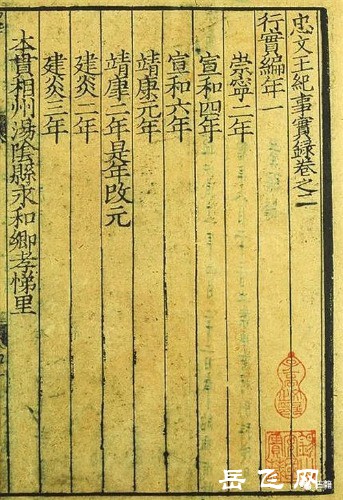 忠文王紀事實錄卷之二
行實編年一
崇寧二年
宣和四年
宣和六年
靖康元年
靖康二年是年改元
建炎二年
建炎三年
本貫相州湯陰縣永和鄉孝悌里
岳飞网